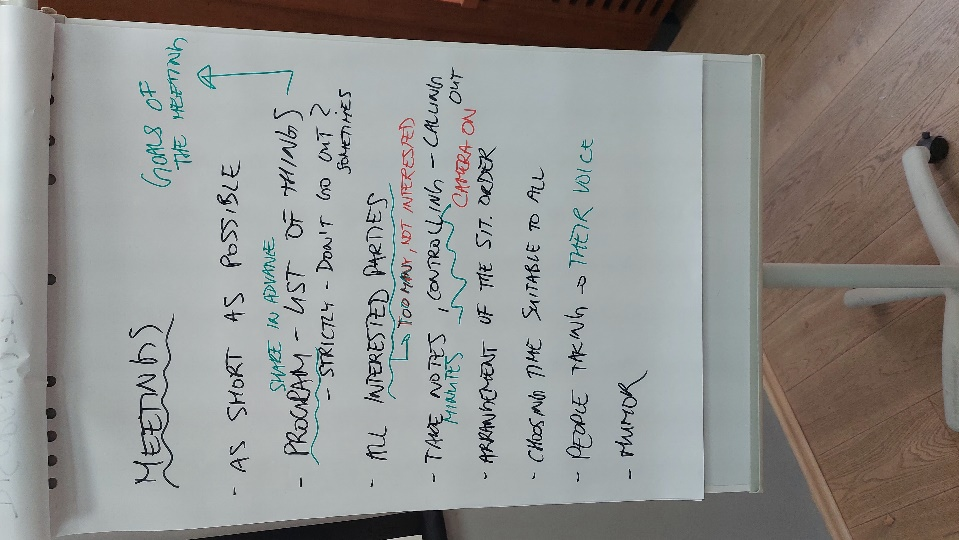 MEETINGS
GOALS OF
THE MEETING
- AS SHORT AS POSSIBLE
SHARE IN ADVANCE
- PROGRAM - LIST OF THINGS
- STRICTLY - DON'T GO OUT?
SOMETIMES
- ALL INTERESTED PARTIES
TOO MANY, NOT INTERESTED
- TAKE NOTES, CONTROLLING - CALLING OUT
MINUTES
CAMERA ON
- ARRANGEMENT OF THE SIT. ORDER
- CHOOSING TIME SUITABLE TO ALL
- PEOPLE TAKING → THEIR VOICE
- HUMOR